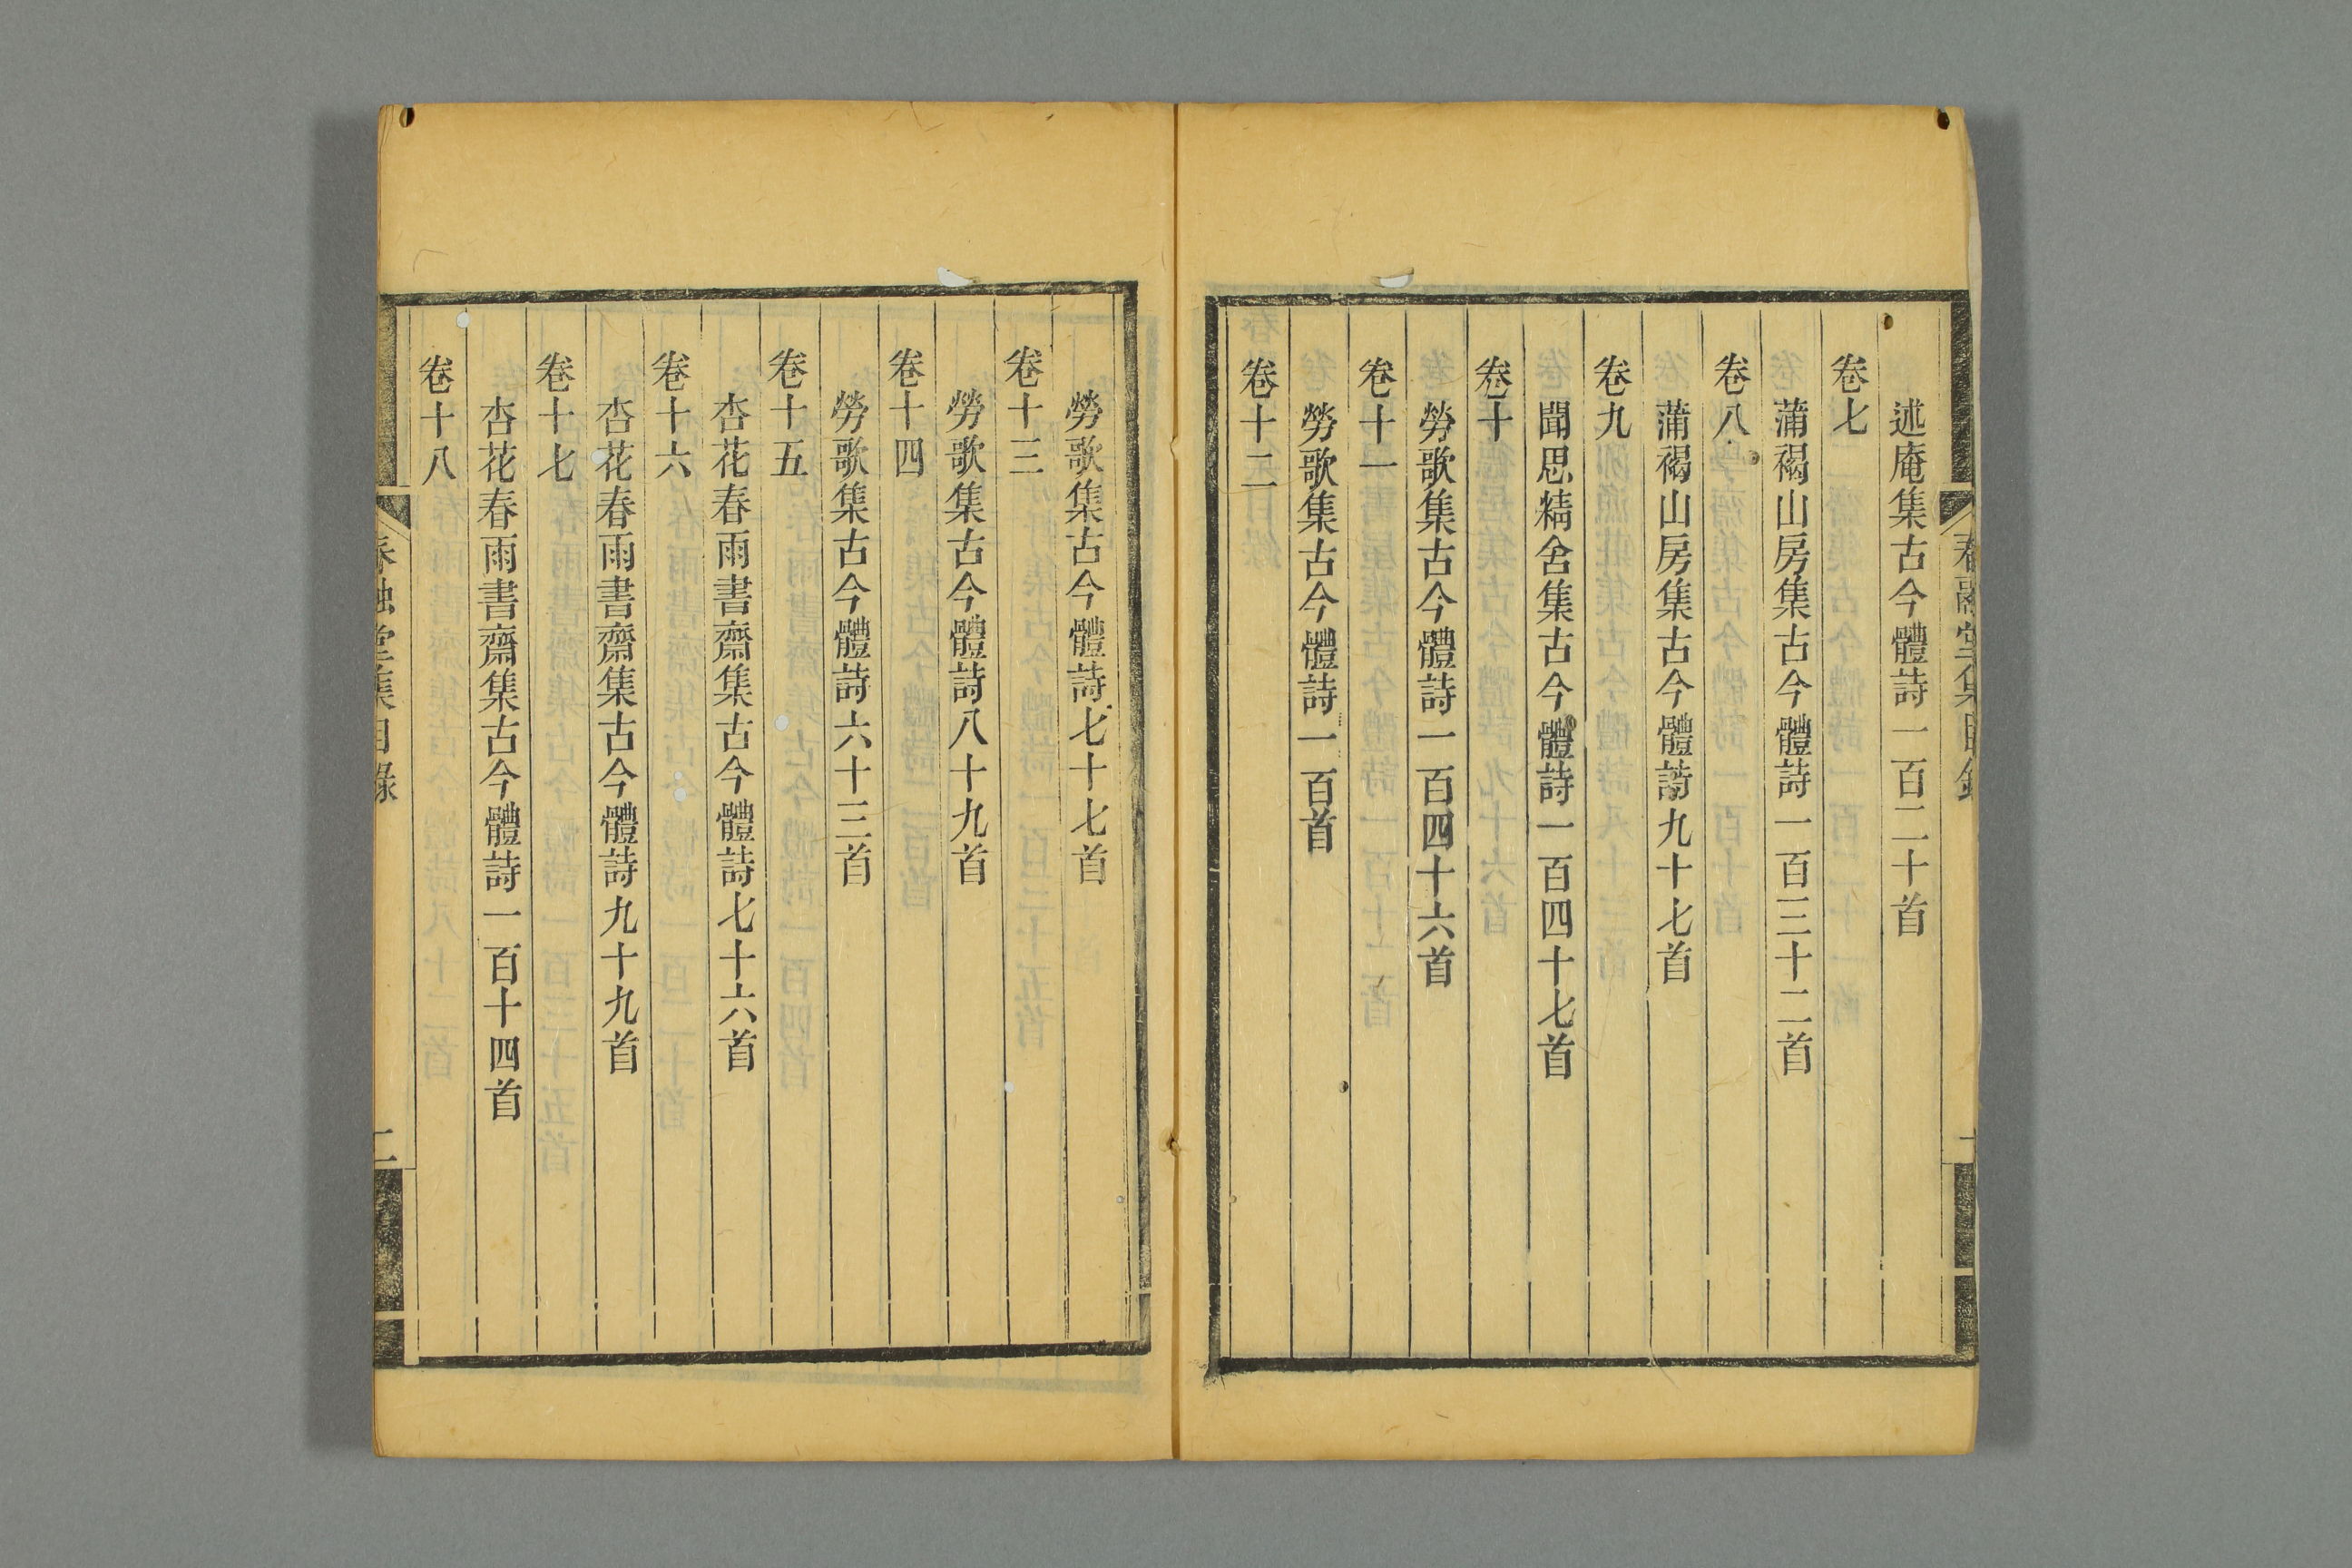 春融堂集目錄
述庵集古今體詩一百二十首
卷七
蒲褐山房集古今體詩一百三十二首
卷八
蒲褐山房集古今體詩九十七首
卷九
聞思精舍集古今體詩一百四十七首
卷十
勞歌集古今體詩一百四十六首
卷十一
勞歌集古今體詩一百首
卷十二
勞歌集古今體詩七十七首
卷十三
勞歌集古今體詩八十九首
卷十四
勞歌集古今體詩六十三首
卷十五
杏花春雨書齋集古今體詩七十六首
卷十六
杏花春雨書齋集古今體詩九十九首
卷十七
杏花春雨書齋集古今體詩一百十四首
卷十八
春融堂集目錄
二